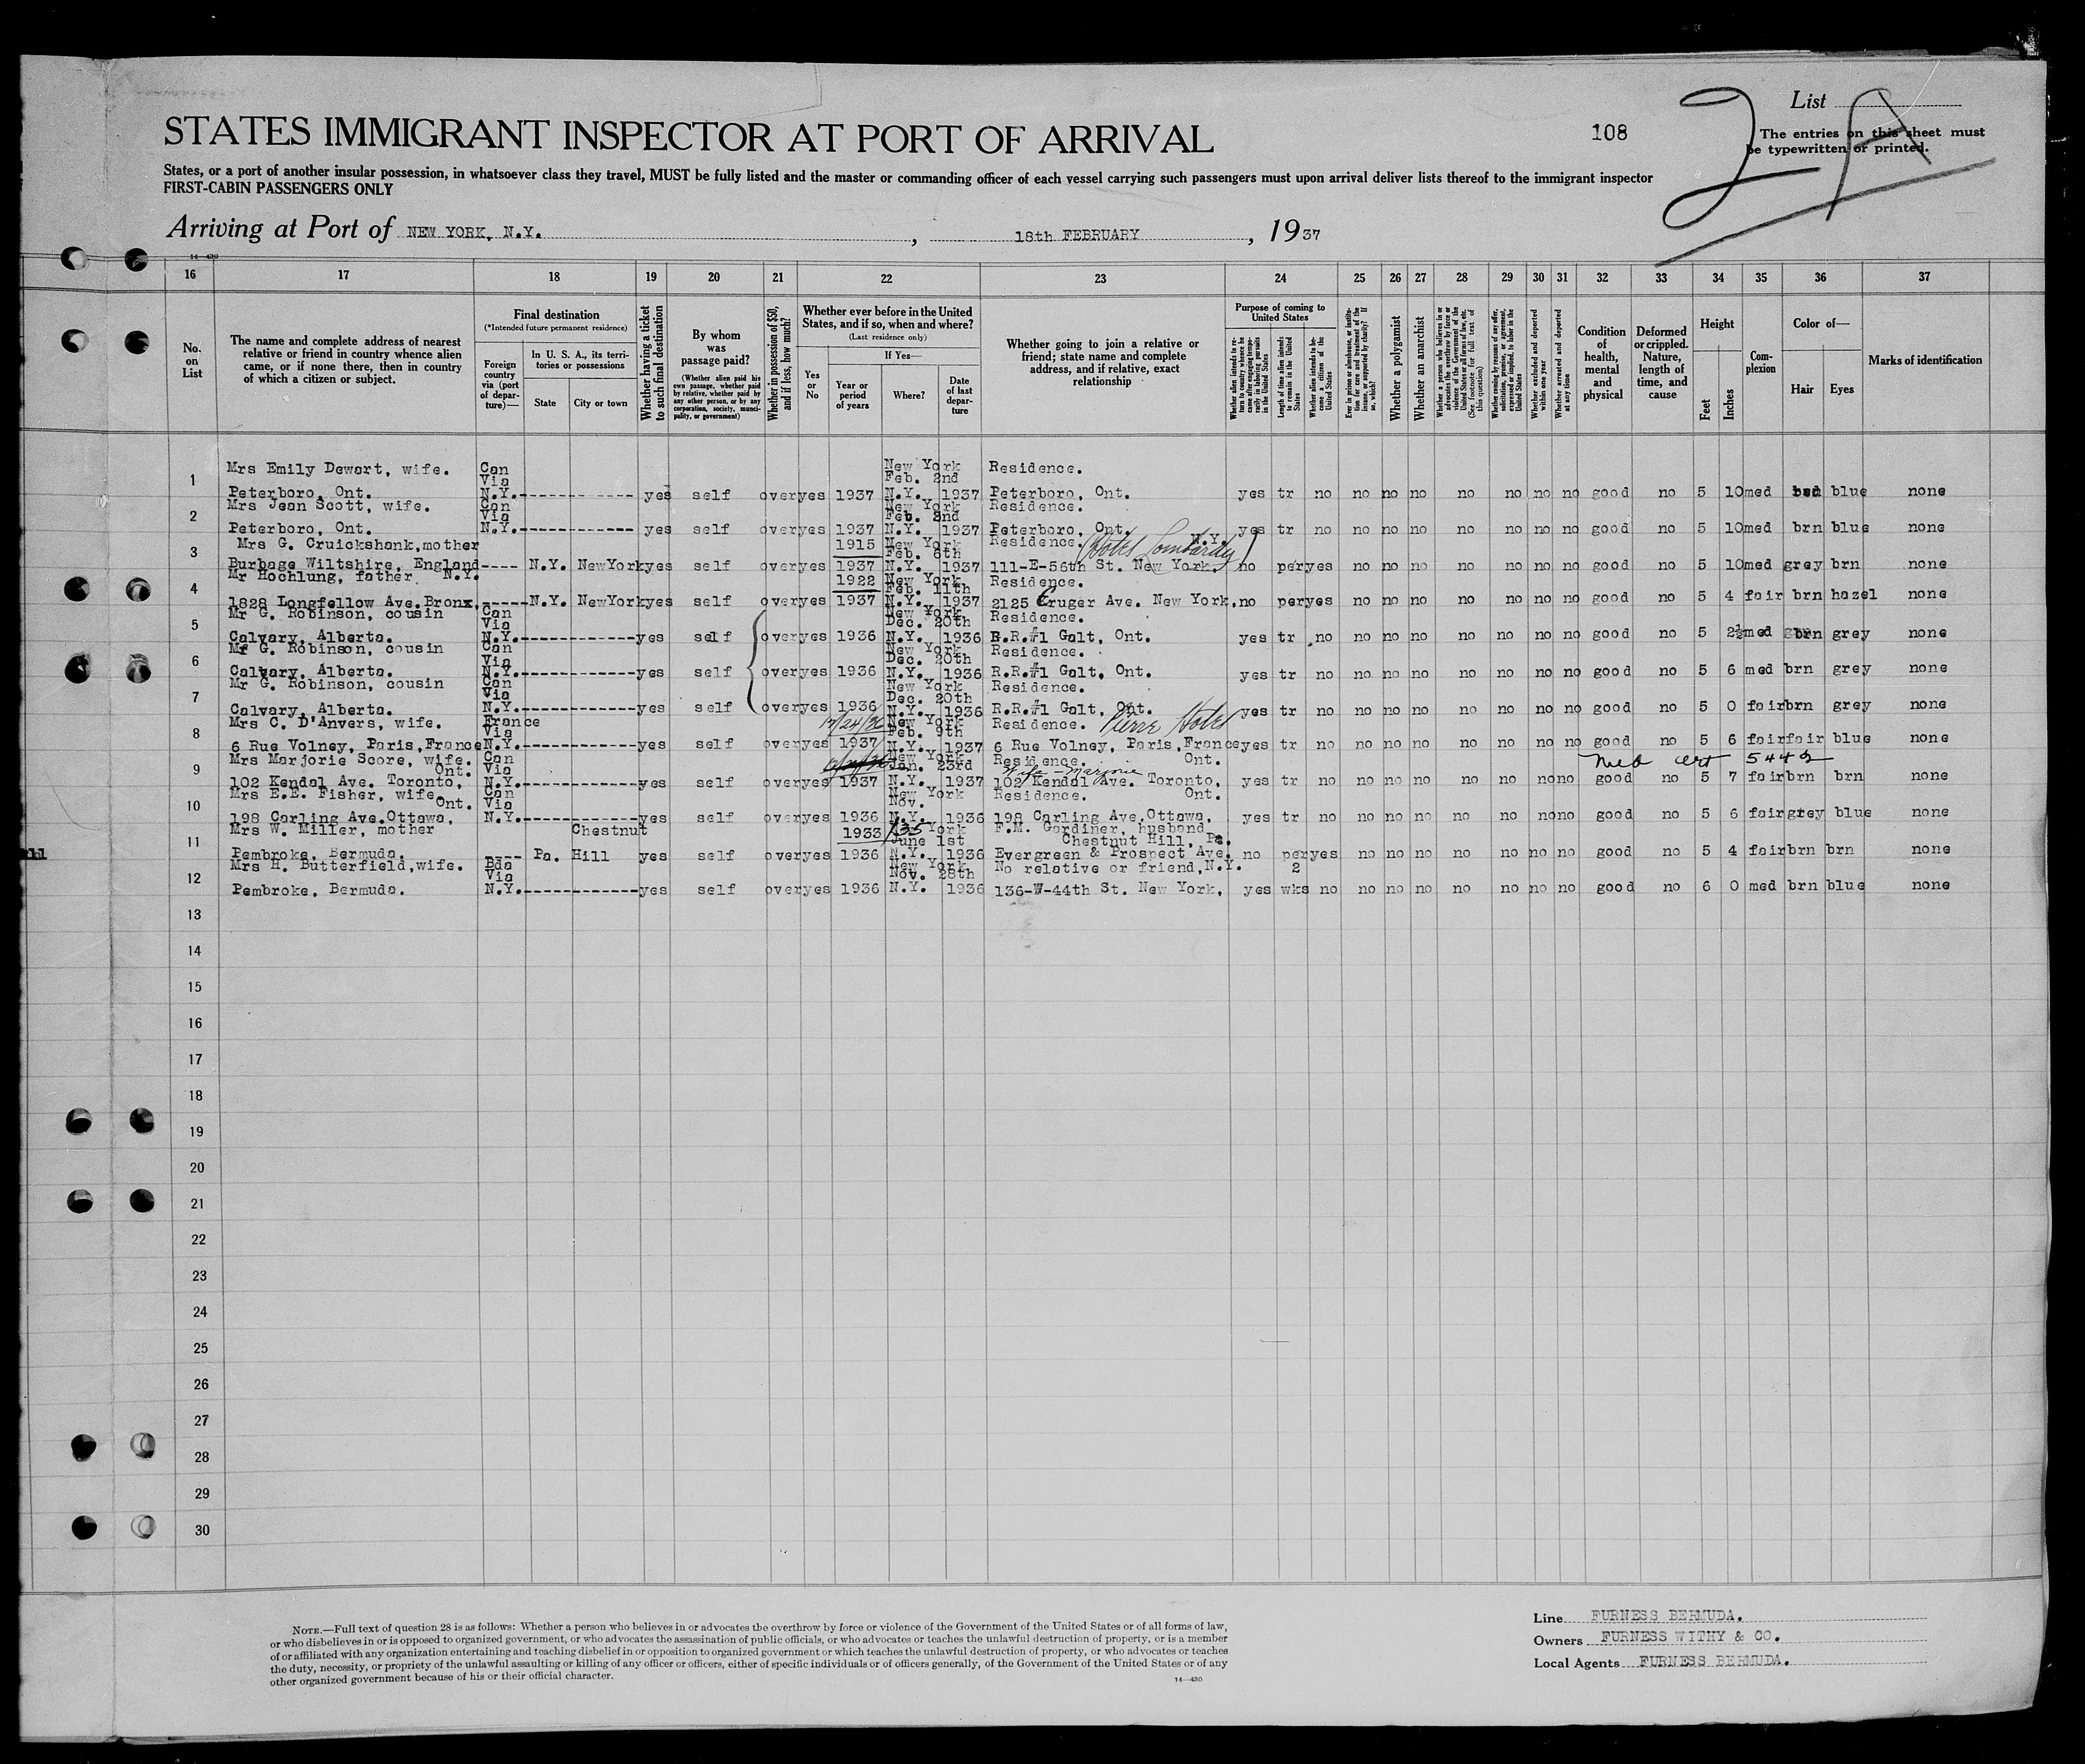 List
108
The entries on this sheet must
be typewritten or printed.
2 A
STATES IMMIGRANT INSPECTOR AT PORT OF ARRIVAL
States, or a port of another insular possession, in whatsoever class they travel, MUST be fully listed and the master or commanding officer of each vessel carrying such passengers must upon arrival deliver lists thereof to the immigrant inspector
FIRST-CABIN PASSENGERS ONLY
Arriving at Port of NEW YORK, N.Y. , 18th FEBRUARY , 1937
14-430
16 17 18 19 20 21 22 23 24 25 26 27 28 29 30 31 32 33 34 35 36 37
No. on List
The name and complete address of nearest relative or friend in country whence alien came, or if none there, then in country of which a citizen or subject.
Final destination
(*Intended future permanent residence)
Foreign country via (port of departure)—
In U. S. A., its territories or possessions
State
City or town
Whether having a ticket to such final destination
By whom was passage paid?
(Whether alien paid his own passage, whether paid by relative, whether paid by any other person, or by any corporation, society, municipality, or government)
Whether in possession of $50, and if less, how much?
Whether ever before in the United States, and if so, when and where?
(Last residence only)
Yes or No
If Yes—
Year or period of years
Where?
Date of last departure
Whether going to join a relative or friend; state name and complete address, and if relative, exact relationship
Purpose of coming to United States
Whether alien intends to return to country whence he came after engaging temporarily in laboring pursuits in the United States
Length of time alien intends to remain in the United States
Whether alien intends to become a citizen of the United States
Ever in prison or almshouse, or institution for care and treatment of the insane, or supported by charity? If so, which?
Whether a polygamist
Whether an anarchist
Whether a person who believes in or advocates the overthrow by force or violence of the Government of the United States or all forms of law, etc. (See footnote for full text of this question)
Whether coming by reasons of any offer, solicitation, promise, or agreement, expressed or implied, to labor in the United States
Whether excluded and deported within one year
Whether arrested and deported at any time
Condition of health, mental and physical
Deformed or crippled. Nature, length of time, and cause
Height
Feet
Inches
Complexion
Color of—
Hair
Eyes
Marks of identification
Mrs Emily Dewart, wife. Can New York Residence.
1 Via Feb. 2nd
Peterboro, Ont. N.Y.----------- yes self over yes 1937 N.Y. 1937 Peterboro, Ont. yes tr no no no no no no no no good no 5 10 med blue none
Mrs Jean Scott, wife. Can New York Residence.
2 Via Feb. 2nd
Peterboro, Ont. N.Y.----------- yes self over yes 1937 N.Y. 1937 Peterboro, Ont. yes tr no no no no no no no no good no 5 10 med brn blue none
Mrs G. Cruickshank, mother 1915 New York Residence. N.Y. Hotel Lombardy
3 Feb. 6th
Burbage Wiltshire, England---- N.Y. NewYork yes self over yes 1937 N.Y. 1937 111-E-56th St. New York. no per yes no no no no no no no good no 5 10 med grey brn none
Mr Hochlung, father. N.Y. 1922 New York Residence.
4 Feb. 11th
1828 Longfellow Ave.Bronx,-----N.Y. NewYork yes self over yes 1937 N.Y. 1937 2125 Cruger Ave. New York. no per yes no no no no no no no good no 5 4 fair brn hazel none
Mr G. Robinson, cousin Can New York Residence.
5 Via Dec. 20th
Calvary, Alberta. N.Y.------------yes self over yes 1936 N.Y. 1936 R.R.#1 Galt, Ont. yes tr no no no no no no no no good no 5 2½ med brn grey none
Mr G. Robinson, cousin Can New York Residence.
6 Via Dec. 20th
Calvary, Alberta. N.Y.------------yes self over yes 1936 N.Y. 1936 R.R.#1 Galt, Ont. yes tr no no no no no no no no good no 5 6 med brn grey none
Mr G. Robinson, cousin Can New York Residence.
7 Via Dec. 20th
Calvary, Alberta. N.Y.------------yes self over yes 1936 N.Y. 1936 R.R.#1 Galt, Ont. yes tr no no no no no no no no good no 5 0 fair brn grey none
Mrs C. D'Anvers, wife. France 12/24/36 New York Residence. Pierre Hotel
8 Via Feb. 9th
6 Rue Volney, Paris,France N.Y.------------yes self over yes 1937 N.Y. 1937 6 Rue Volney, Paris,France yes tr no no no no no no no no good no 5 6 fair fair blue none
Mrs Marjorie Score, wife. Can New York Residence. Ont. Med cert 5442
9 Ont. Via Jan. 23rd Wife - Marjorie
102 Kendal Ave. Toronto, N.Y.------------yes self over yes 1937 N.Y. 1937 102 Kendal Ave. Toronto, yes tr no no no no no no no no good no 5 7 fair brn brn none
Mrs E.E. Fisher, wife Can New York Residence. Ont.
10 Ont. Via Nov.
198 Carling Ave.Ottawa, N.Y.------------yes self over yes 1936 N.Y. 1936 198 Carling Ave.Ottawa, yes tr no no no no no no no no good no 5 6 fair grey blue none
Mrs W. Miller, mother Chestnut 1933/35 York F.M. Gardiner, husband
11 June 1st Chestnut Hill, Pa.
Pembroke, Bermuda. ---- Pa. Hill yes self over yes 1936 N.Y. 1936 Evergreen & Prospect Ave. no per yes no no no no no no no good no 5 4 fair brn brn none
Mrs H. Butterfield,wife. Bda New York No relative or friend,N.Y. 2
12 Via Nov. 28th
Pembroke, Bermuda. N.Y.------------yes self over yes 1936 N.Y. 1936 136-W-44th St. New York, yes wks no no no no no no no no good no 6 0 med brn blue none
13
14
15
16
17
18
19
20
21
22
23
24
25
26
27
28
29
30
NOTE.—Full text of question 28 is as follows: Whether a person who believes in or advocates the overthrow by force or violence of the Government of the United States or of all forms of law,
or who disbelieves in or is opposed to organized government, or who advocates the assassination of public officials, or who advocates or teaches the unlawful destruction of property, or is a member
of or affiliated with any organization entertaining and teaching disbelief in or opposition to organized government or which teaches the unlawful destruction of property, or who advocates or teaches
the duty, necessity, or propriety of the unlawful assaulting or killing of any officer or officers, either of specific individuals or of officers generally, of the Government of the United States or of any
other organized government because of his or their official character.
14-430
Line FURNESS BERMUDA.
Owners FURNESS WITHY & CO.
Local Agents FURNESS BERMUDA.